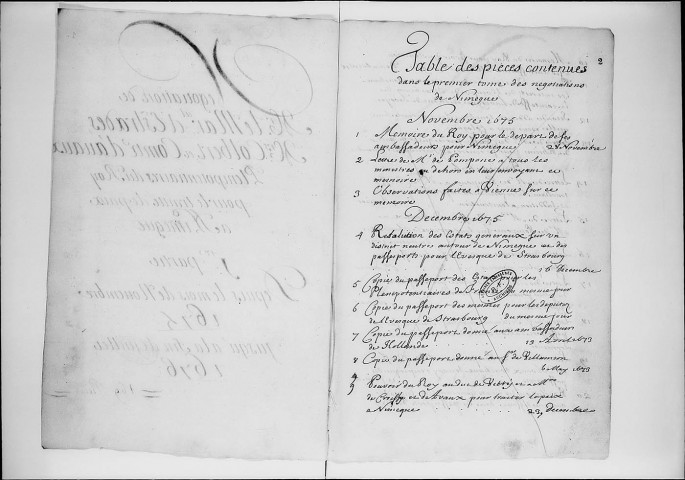 2
Table des pieces contenues
dans le premier tome des negotiations
de Nimegue
Novembre 1675
1 Memoire du Roy pour le depart de ses
ambassadeurs pour Nimegue 23 Novembre
2 Lettre de Mr. de Pompone a tous les
ministres au dehors en leur envoyant ce
memoire
3 Observations faites a Vienne sur ce
memoire
Decembre 1675
4 Resolution des Estats generaux sur un
district neutre autour de Nimegue et des
passeports pour l'Evesque de Strasbourg
16 decembre
5 Copie du passeport des Estats pour les
Plenipotentiaires de France du mesme jour
6 Copie du passeport des mesmes pour les deputez
de l'Evesque de Strasbourg du mesme jour
7 Copie du passeport donné aux ambassadeurs
de Hollande 13 Avril 1673
8 Copie du passeport donné au Sr. de
6 May 1673
9 Pouvoir du Roy au duc de Vitry et a Mrs
de Croissy et d'Avaux pour traiter la paix
a Nimegue 23 decembre
negotiation de
Mr. le Mar.al d'Estrades
Mr. Colbert et Comte d'avaux
Plenipotentiaires du Roy
pour le traité de paix
de Nimegue
1re partie
Depuis le mois de Novembre
1675
jusqu'a la fin de
1676